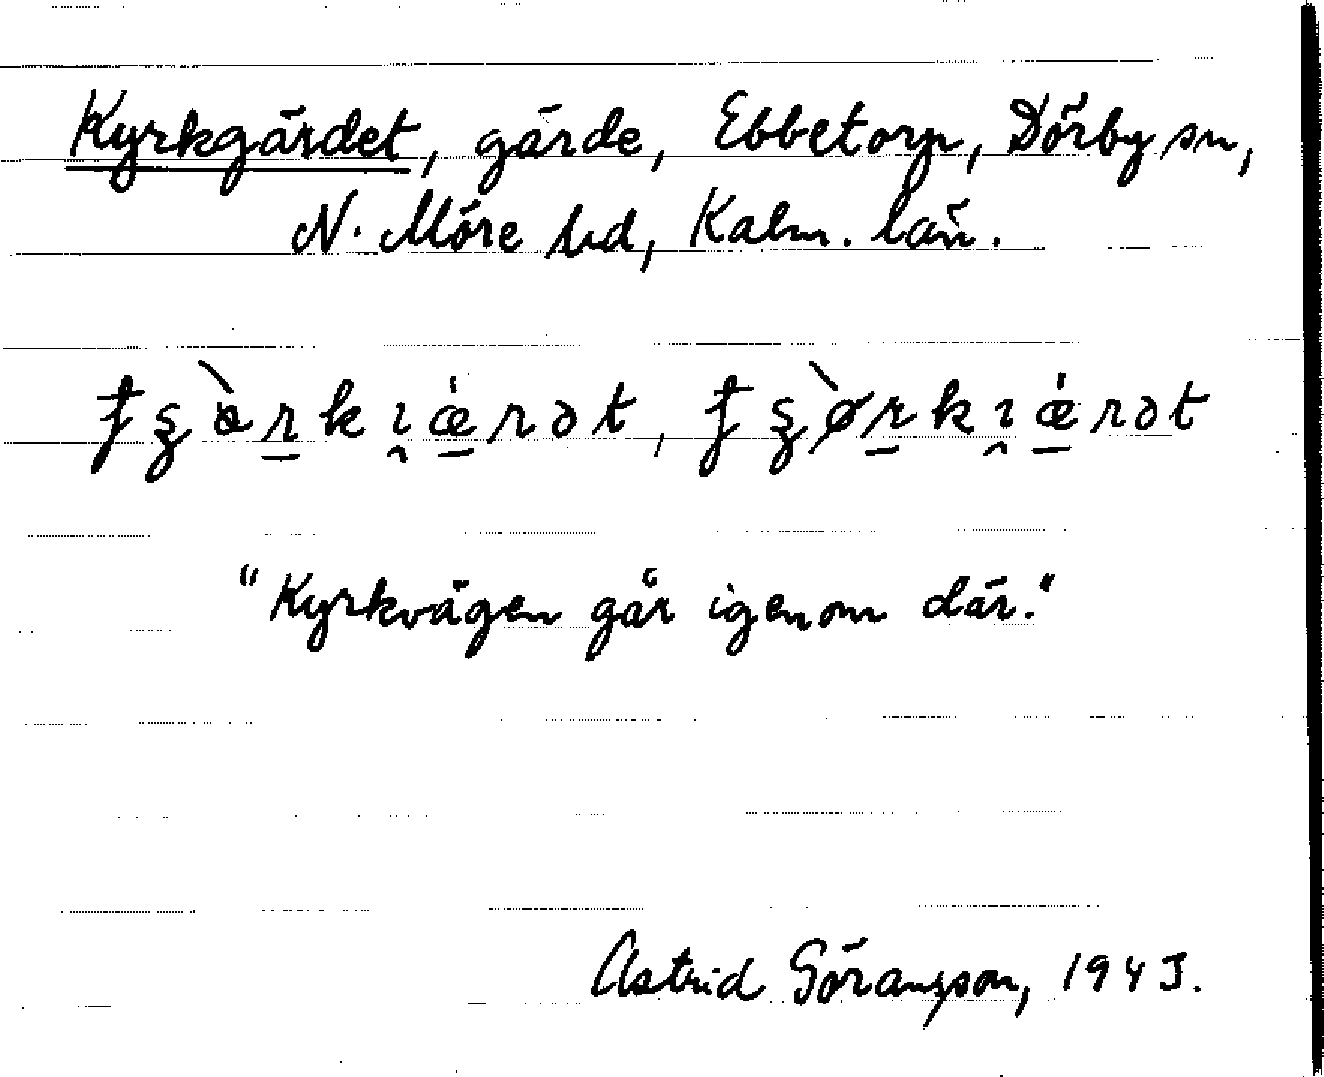 Kyrkgärdet, gärde, Ebbetorp, Dörby sn,
N. Möre hd, Kalm. län.
"Kyrkvägen går igenom där."
Astrid Göransson, 1943.